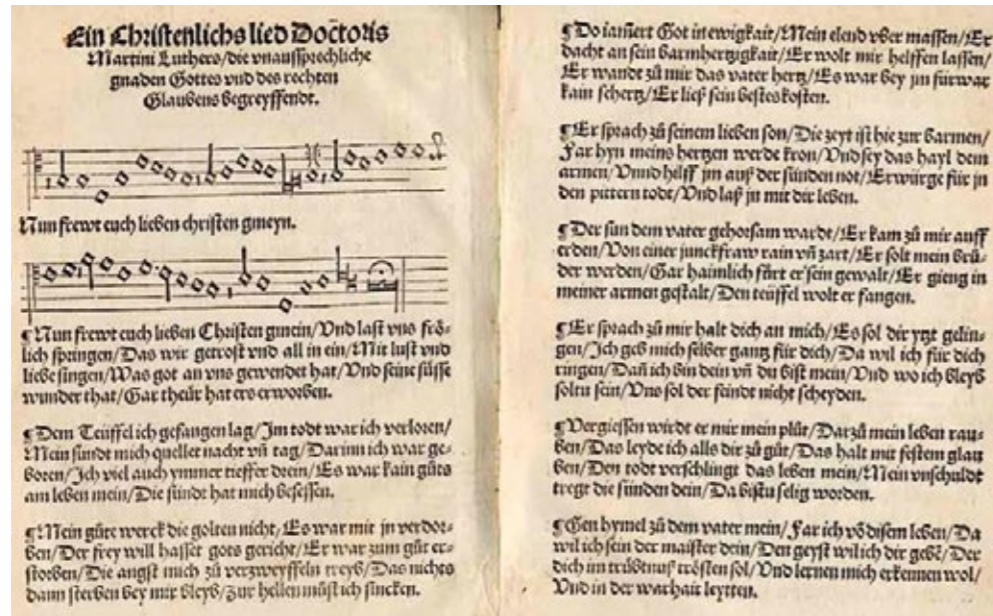 Ein Christenlichs lied Doctoris
Martini Luthers/die vnaussprechliche
gnaden Gottes vnd des rechten
Glaubens begreyffendt.
Nun frewt euch lieben christen gmeyn.
¶Nun frewt euch lieben Christen gmein/Vnd last vns frö-
lich springen/Das wir getrost vnd all in ein/Mit lust vnd
liebe singen/Was got an vns gewendet hat/Vnd seine süsse
wunder that/Gar theür hat ers erworben.
¶Dem Teüffel ich gefangen lag/Im todt war ich verloren/
Mein sündt mich quellet nacht vñ tag/Darinn ich war ge-
boren/Ich viel auch ymmer tieffer drein/Es war kain gůts
am leben mein/Die sündt hat mich besessen.
¶Mein gůte werck die golten nicht/Es war mit jn verdor-
ben/Der frey will hasset gots gericht/Er war zum gůt er-
storben/Die angst mich zů verzweyffeln treyb/Das nichts
dann sterben bey mir bleyb/Zur hellen můst ich sincken.
¶Do iamert Got in ewigkait/Mein elend vber massen/Er
dacht an sein barmhertzigkait/Er wolt mir helffen lassen/
Er wandt zů mir das vater hertz/Es war bey jm fürwar
kain schertz/Er ließ sein bestes kosten.
¶Er sprach zů seinem lieben son/Die zeyt ist hie zur barmen/
Far hyn meins hertzen werde kron/Vnd sey das hayl dem
armen/Vnnd hilff jm auß der sünden not/Erwürge für jn
den pittern todt/Vnd laß jn mit dir leben.
¶Der sun dem vater gehorsam wardt/Er kam zů mir auff
erden/Von einer junckfraw rain vñ zart/Er solt mein brů-
der werden/Gar haimlich fürt er sein gewalt/Er gieng in
meiner armen gestalt/Den teüffel wolt er fangen.
¶Er sprach zů mir halt dich an mich/Es sol dir yzt gelin-
gen/Ich geb mich selber gantz für dich/Da wil ich für dich
ringen/Dañ ich bin dein vñ du bist mein/Vnd wo ich bleyb
soltu sein/Vns sol der feindt nicht scheyden.
¶Vergiessen wirdt er mir mein plůt/Darzů mein leben rau-
ben/Das leyde ich alls dir zů gůt/Das halt mit festem glau
ben/Den todt verschlingt das leben mein/Mein vnschuldt
tregt die sünden dein/Da bistu selig worden.
¶Gen hymel zů dem vater mein/Far ich võ disem leben/Da
wil ich sein der maister dein/Den geyst wil ich dir gebẽ/Der
dich im trübtnuß trösten sol/Vnd lernen mich erkennen wol/
Vnd in der warhait leytten.